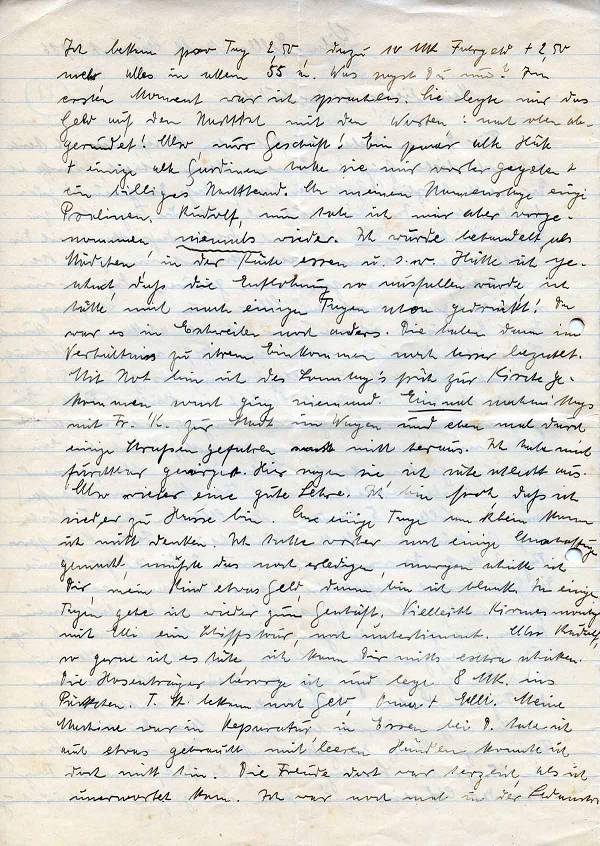 Ich bekam pro Tag 2,50 dazu 10 Mk Fahrgeld + 2,50
mehr alles in allem 55 M. Was sagst Du nun? Im
ersten Moment war ich sprachlos. Sie legte mir das
Geld auf den Nachttisch mit den Worten: nach oben ab-
gerundet! Also nur Geschäft! Ein paar alte Hüte
+ einige alte Gardinen hatte sie mir vorher gegeben +
ein billiges Nachthemd. An meinem Namenstage einige
Pralinen. Rudolf, nun habe ich mir aber vorge-
nommen, niemals wieder. Ich wurde behandelt als
Mädchen, in der Küche essen u.s.w. Hätte ich ge-
ahnt, daß die Entlohnung so ausfallen würde ich
hätte mich nach einigen Tagen schon gedrückt! Da
war es in Eschweiler noch anders. Die haben dann im
Verhältnis zu ihrem Einkommen noch besser bezahlt.
Mit Not bin ich des Sonntag's früh zur Kirche ge-
kommen sonst ging niemand. Einmal nachmittags
mit Fr. K. zur Stadt im Wagen und eben mal durch
einige Straßen gefahren nicht heraus. Ich habe mich
furchtbar geärgert. Hier sagen sie ich sähe schlecht aus.
Also wieder eine gute Lehre. Ich bin froh daß ich
wieder zu Hause bin. Eure einige Tage am Rhein kann
ich nicht denken. Ich hatte vorher noch einige
gemacht, müßte das noch erledigen, morgen schicke ich
Dir, mein Kind etwas Geld, dann bin ich blank. In einigen
Tagen gehe ich wieder zum Geschäft. Vielleicht Kirmesmontag
mit Elli eine Schiffstour, noch unbestimmt. Also Rudolf,
so gerne ich es täte ich kann Dir nichts extra schicken.
Die Hosenträger besorge ich und lege 8 Mk. ins
Päckchen. T. K. bekam noch Geld Oma + Elli. Meine
Maschine war in Reparatur, in Essen bei P. habe ich
auch etwas gebraucht mit leeren Händen konnte ich
dort nicht hin. Die Freude dort war herzlich, als ich
unerwartet kam. Ich war noch mal in der